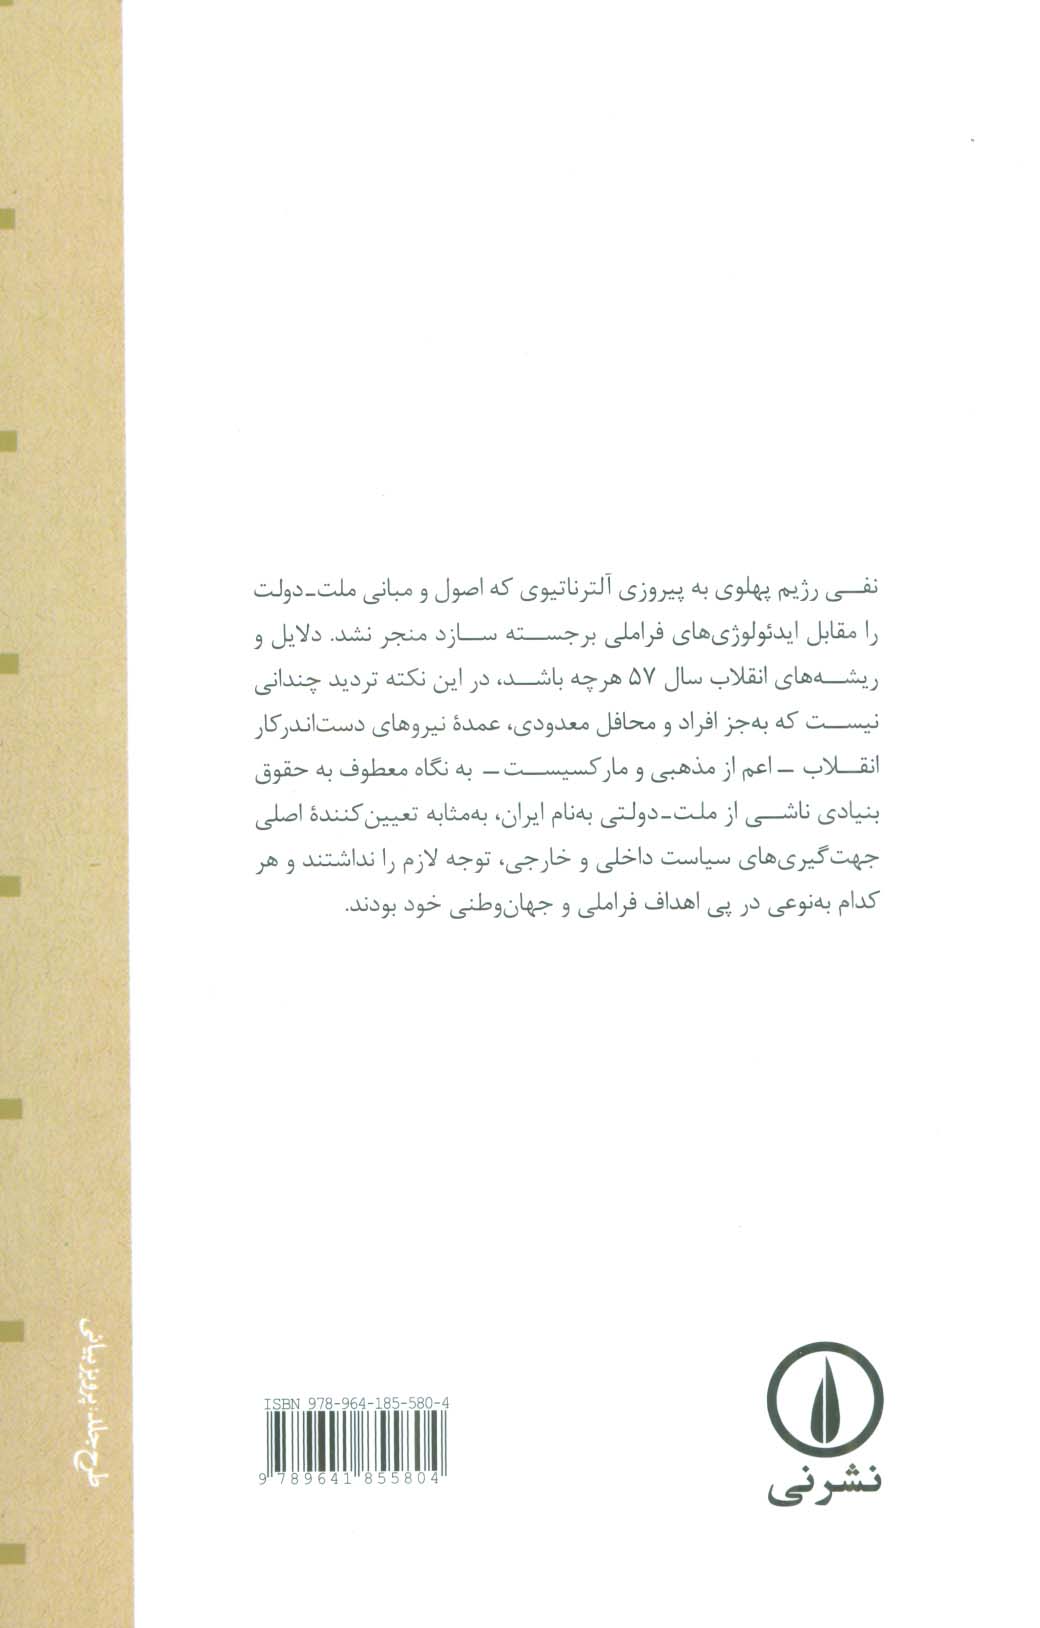 نفی رژیم پهلوی به پیروزی آلترناتیوی که اصول و مبانی ملت‌ـ‌دولت
را مقابل ایدئولوژی‌های فراملی برجسته سازد منجر نشد. دلایل و
ریشه‌های انقلاب سال ۵۷ هرچه باشد، در این نکته تردید چندانی
نیست که به‌جز افراد و محافل معدودی، عمدهٔ نیروهای دست‌اندرکار
انقلاب ـ اعم از مذهبی و مارکسیست ـ به نگاه معطوف به حقوق
بنیادی ناشی از ملت‌ـ‌دولتی به‌نام ایران، به‌مثابه تعیین‌کنندهٔ اصلی
جهت‌گیری‌های سیاست داخلی و خارجی، توجه لازم را نداشتند و هر
کدام به‌نوعی در پی اهداف فراملی و جهان‌وطنی خود بودند.
طرح جلد: پرویز بیانی
ISBN 978-964-185-580-4
9 789641 855804
نشر نی